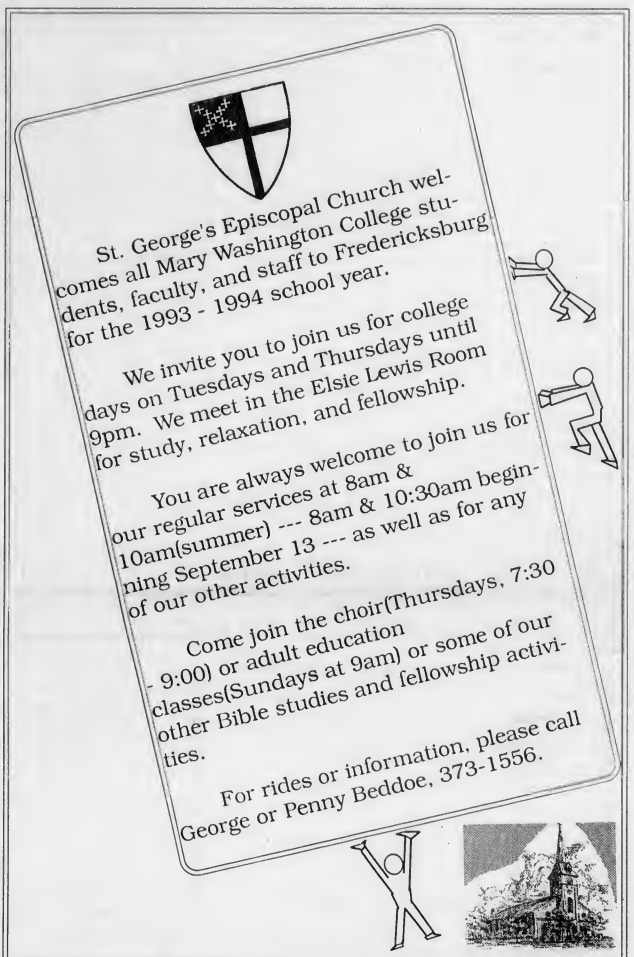 St. George's Episcopal Church wel-
comes all Mary Washington College stu-
dents, faculty, and staff to Fredericksburg
for the 1993 - 1994 school year.
We invite you to join us for college
days on Tuesdays and Thursdays until
9pm. We meet in the Elsie Lewis Room
for study, relaxation, and fellowship.
You are always welcome to join us for
our regular services at 8am &
10am(summer) --- 8am & 10:30am begin-
ning September 13 --- as well as for any
of our other activities.
Come join the choir(Thursdays, 7:30
- 9:00) or adult education
classes(Sundays at 9am) or some of our
other Bible studies and fellowship activi-
ties.
For rides or information, please call
George or Penny Beddoe, 373-1556.